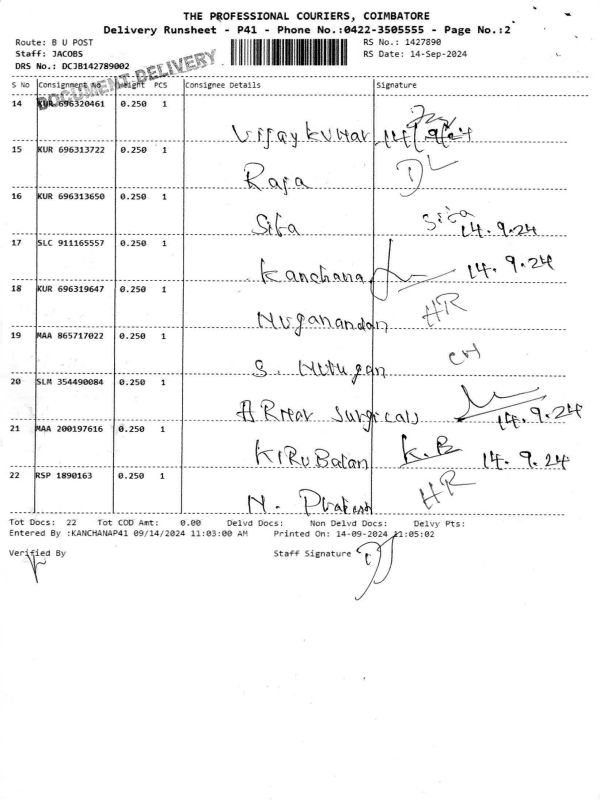 THE PROFESSIONAL COURIERS, COIMBATORE
Delivery Runsheet - P41 - Phone No.:0422-3505555 - Page No.:2
Route: B U POST RS No.: 1427890
Staff: JACOBS RS Date: 14-Sep-2024
DRS No.: DCJB142789002
DOCUMENT DELIVERY
S No Consignment No Weight PCS Consignee Details Signature
14 KUR 696320461 0.250 1
Vijay kumar 14/9/24
15 KUR 696313722 0.250 1
Raja DL
16 KUR 696313650 0.250 1
Sita Sita 14.9.24
17 SLC 911165557 0.250 1
Kanchana 14.9.24
18 KUR 696319647 0.250 1
HR
19 MAA 865717022 0.250 1
S. Murugan
20 SLM 354490084 0.250 1
Surgicals 14.9.24
21 MAA 200197616 0.250 1
KiRuBalan K.B 14.9.24
22 RSP 1890163 0.250 1
N. Prakash HR
Tot Docs: 22 Tot COD Amt: 0.00 Delvd Docs: Non Delvd Docs: Delvy Pts:
Entered By :KANCHANAP41 09/14/2024 11:03:00 AM Printed On: 14-09-2024 11:05:02
Verified By Staff Signature